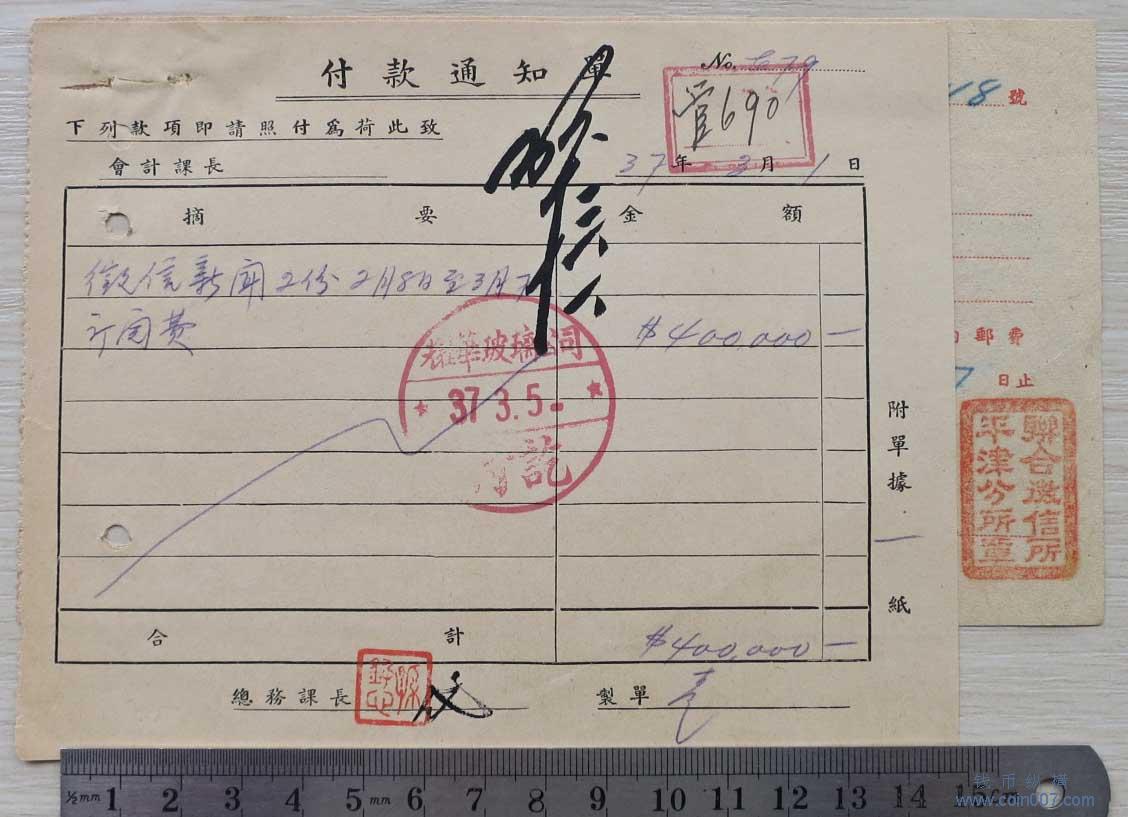 付款通知單
No.
管690
下列款項即請照付爲荷此致
會計課長
37年3月1日
摘要 金額
徵信新聞2份2月8日至3月7
訂閱費 $400,000一
耀華玻璃公司
37.3.5
付訖
附單據一紙
合計 $400,000一
總務課長
製單
18號
郵費
7日止
聯合徵信所
平津分所章
½mm 1 2 3 4 5mm 6 7 8 9 10 11 12 13 14 15cm
钱币纵横
www.coin007.com